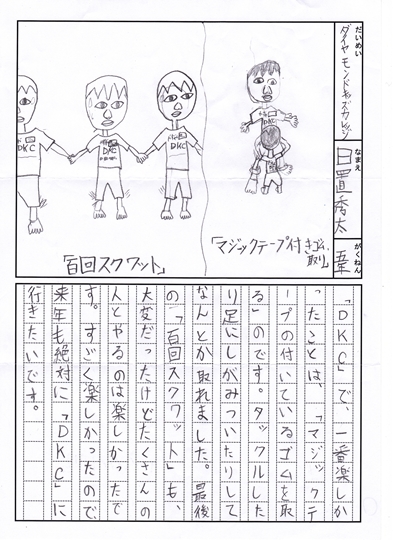 だいめい
ダイヤモンドキッズカレッジ
なまえ
日置秀太
がくねん
「マジックテープ付きゴム、
取り」
「百回スクワット」
DKC
DKC
DKC
「DKC」で、一番楽しか
ったことは、「マジックテ
ープの付いているゴムを取
る」のです。タックルした
り足にしがみついたりして
なんとか取れました。最後
の「百回スクワット」も、
大変だったけどたくさんの
人とやるのは楽しかったで
す。すごく楽しかったので
来年も絶対に「DKC」に
行きたいです。